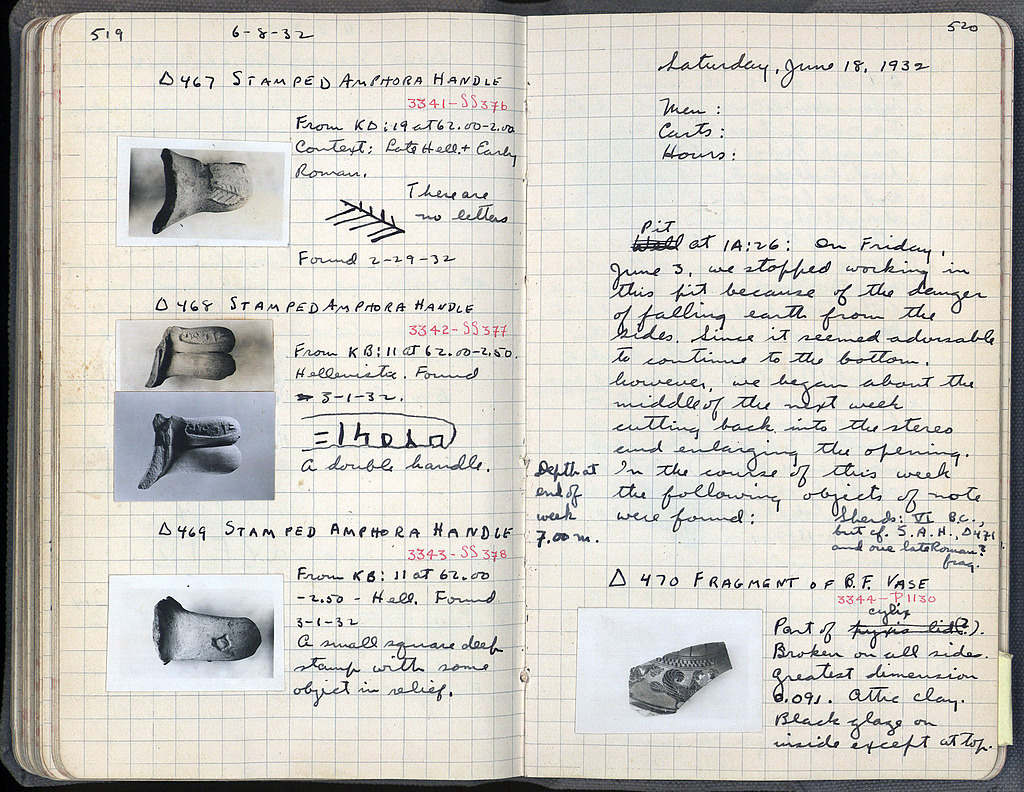 519 6-8-32
Δ467 STAMPED AMPHORA HANDLE
3341-SS376
From KD:19 at 62.00-2.00
Context: Late Hell.+ Early
Roman.
There are
no letters
Found 2-29-32
Δ468 STAMPED AMPHORA HANDLE
3342-SS377
From KB:11 at 62.00-2.50.
Hellenistic. Found
3-1-32.
A double handle.
Δ469 STAMPED AMPHORA HANDLE
3343-SS378
From KB:11 at 62.00
-2.50 - Hell. Found
3-1-32
A small square deep
stamp with some
object in relief.
520
Saturday, June 18, 1932
Men :
Carts :
Hours :
Pit
Well at 1A:26: On Friday,
June 3, we stopped working in
this pit because of the danger
of falling earth from the
sides. Since it seemed advisable
to continue to the bottom,
however, we began about the
middle of the next week
cutting back into the stereo
and enlarging the opening.
In the course of this week
the following objects of note
were found:
Depth at
end of
week
7.00 m.
Sherds: VI B.C.,
but cf. S.A.H., Δ471
and one late Roman?
frag.
Δ 470 FRAGMENT OF B.F. VASE
3344-P1130
cylix
Part of pyxis lid(?).
Broken on all sides.
Greatest dimension
0.091. Attic clay.
Black glaze on
inside except at top.